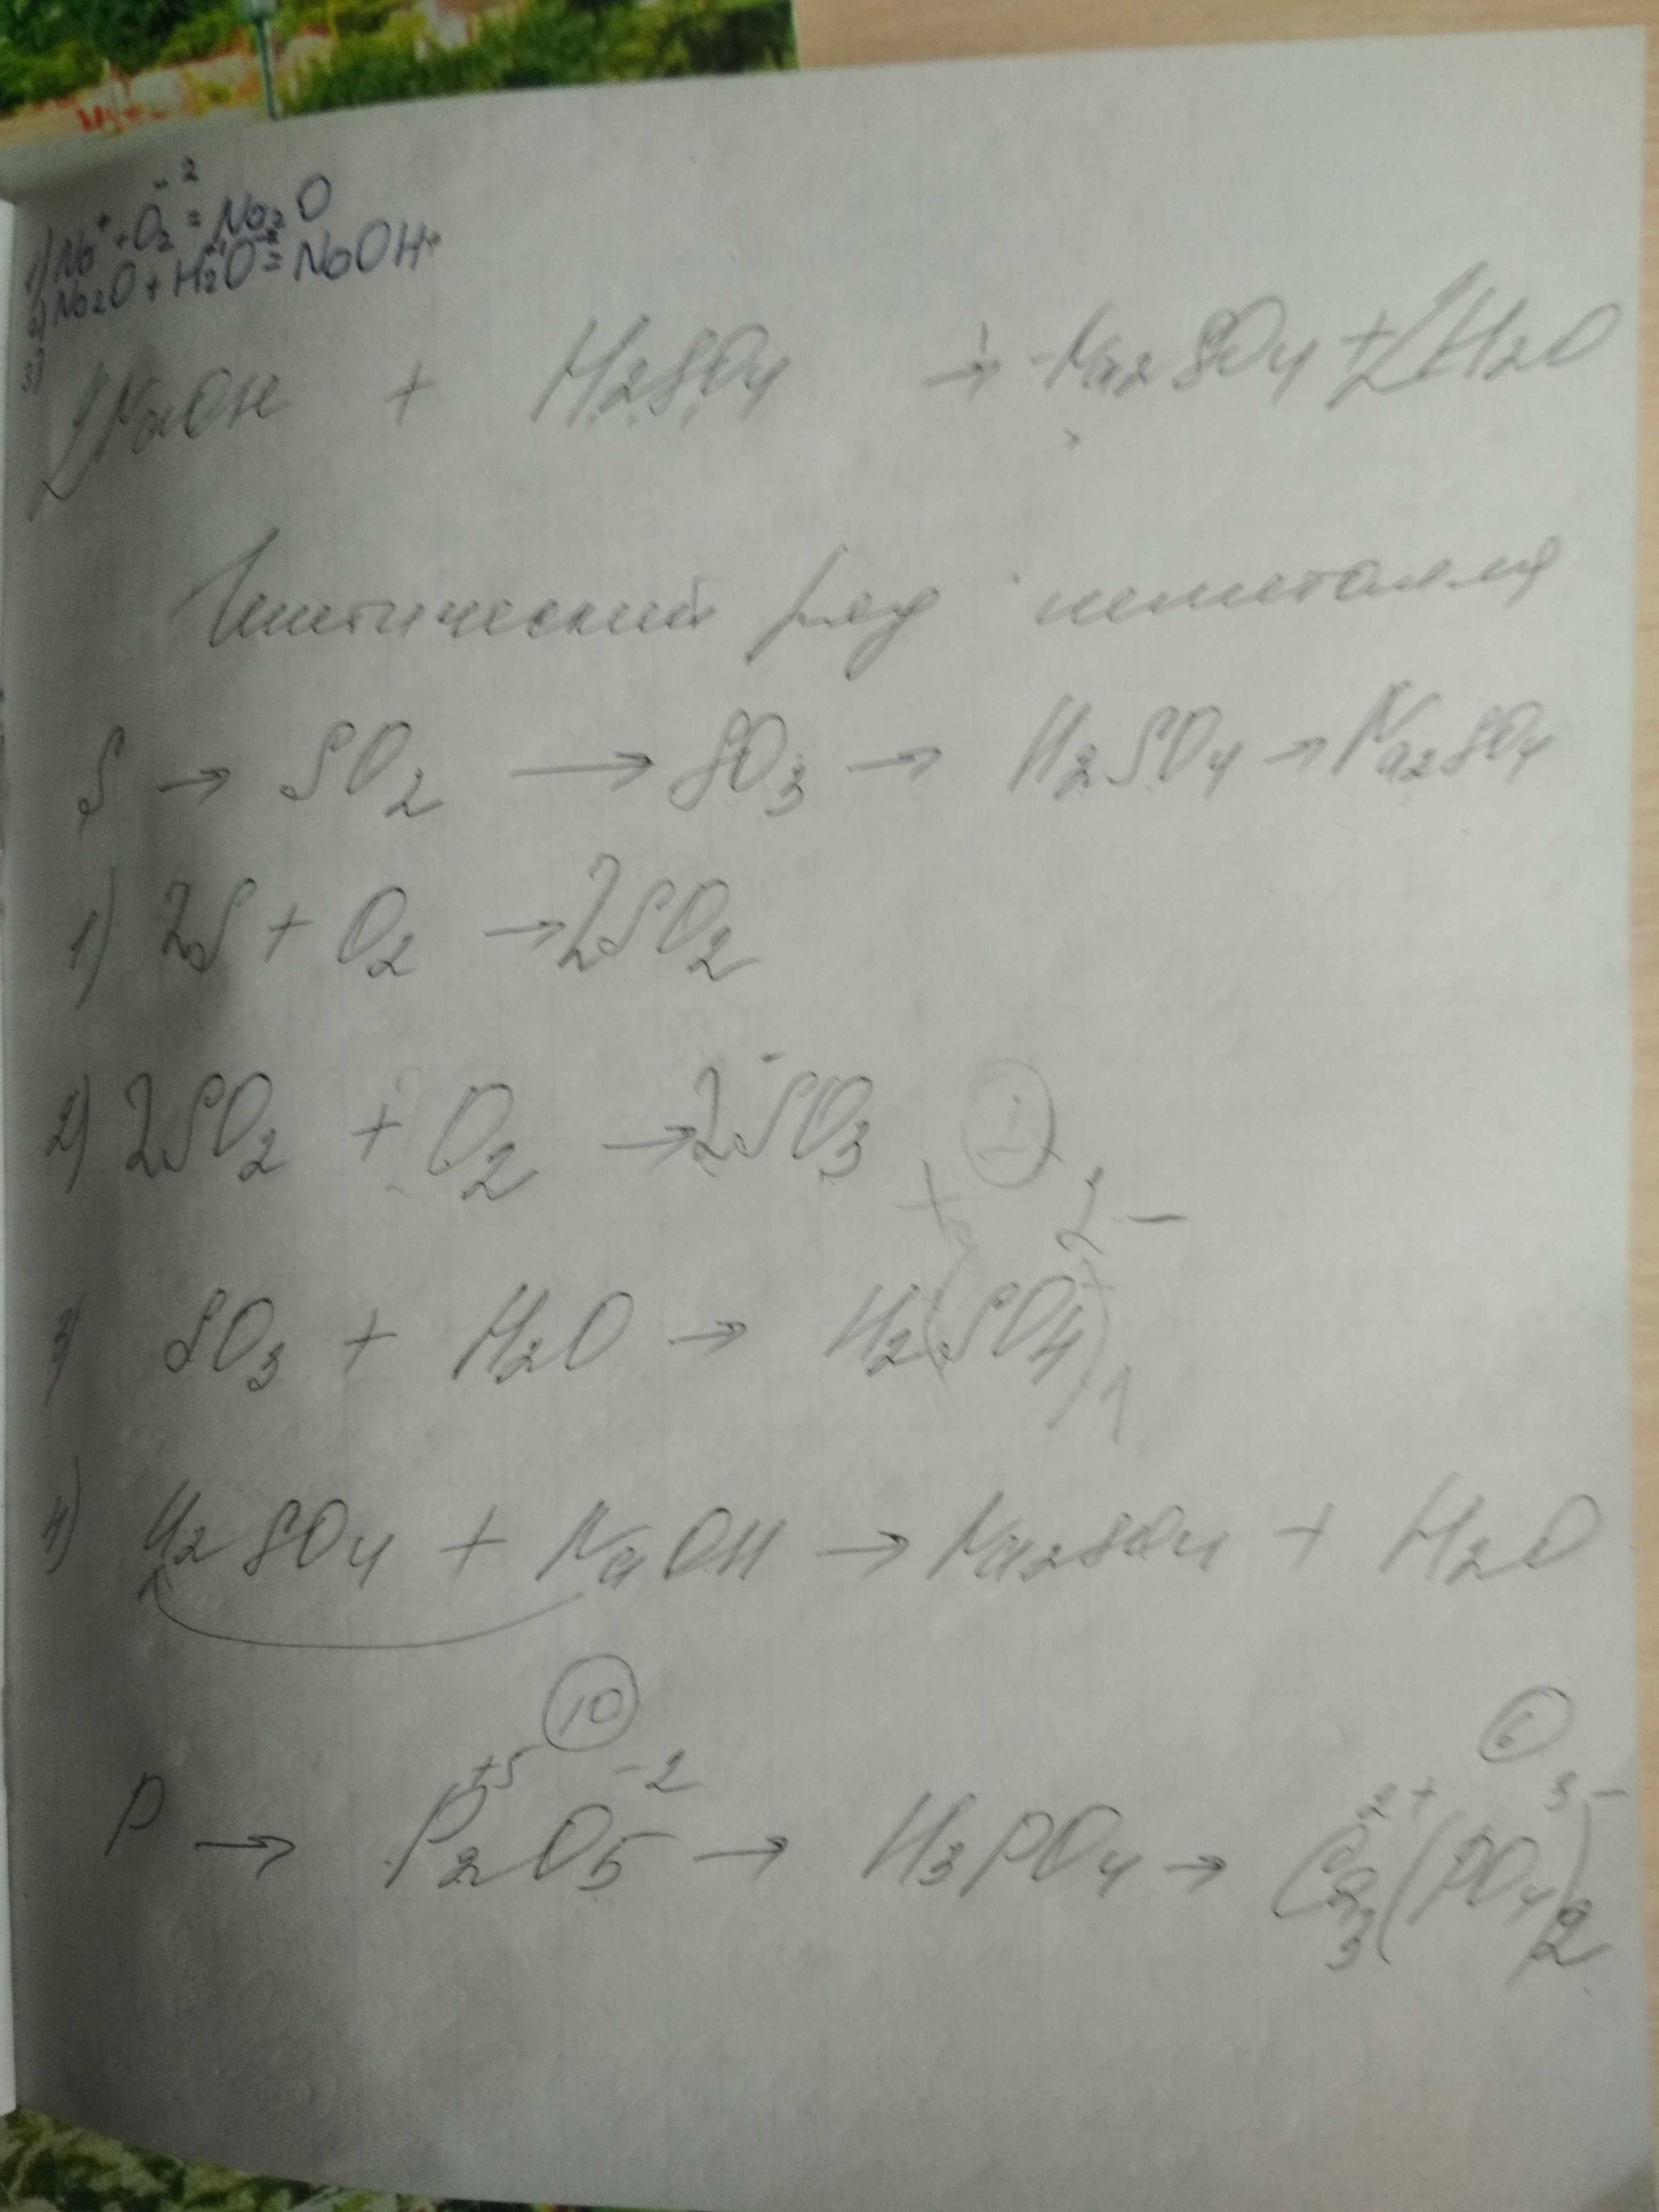 1) Na⁺ + O₂⁻² = Na₂O
2) Na₂O + H₂O = NaOH
3)
2NaOH + H₂SO₄ → Na₂SO₄ + 2H₂O
Генетический ряд неметалла
S → SO₂ → SO₃ → H₂SO₄ → Na₂SO₄
1) 2S + O₂ → 2SO₂
2) 2SO₂ + O₂ → 2SO₃
+ 2−
3) SO₃ + H₂O → H₂(SO₄)₁
4) H₂SO₄ + NaOH → Na₂SO₄ + H₂O
10 6
P → P₂⁺⁵O₅⁻² → H₃PO₄ → Ca₃²⁺(PO₄)₂³⁻